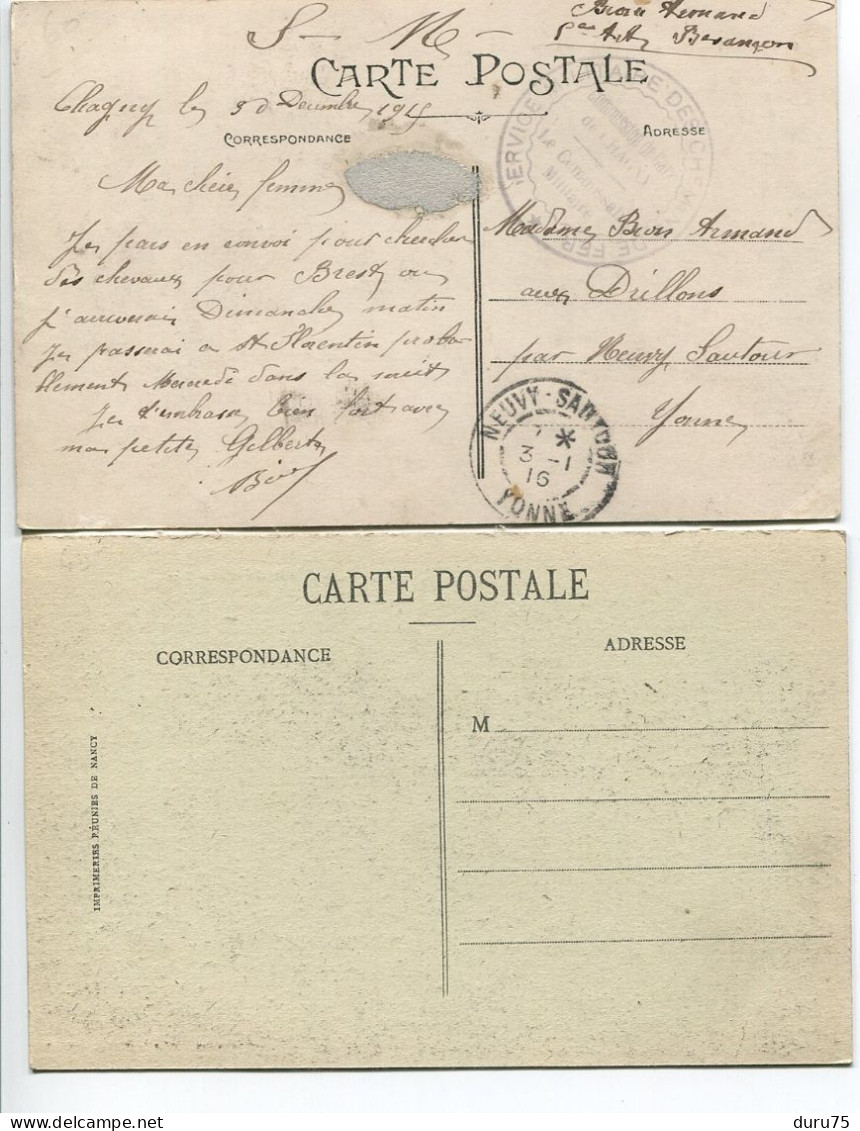 S - M -
Bion Armand
Besançon
CARTE POSTALE
Chagny le Decembre 1915
CORRESPONDANCE
ADRESSE
SERVICE MILITAIRE DES CHEMINS DE FER
Commission de Gare
de CHAGNY
Le Commissaire
Militaire
Ma chère femme
Je pars en convoi pour chercher
des chevaux pour Brest ou
j'arriverai Dimanche matin
Je passerai a St Florentin proba
blement Mercredi dans la nuit
Je t'embrasse bien fort avec
ma petite Gilberte
Bion
Madame Bion Armand
aux Drillons
par Neuvy Sautour
Yonne
NEUVY-SAUTOUR
3 -1
16
YONNE
CARTE POSTALE
CORRESPONDANCE
ADRESSE
M
IMPRIMERIES RÉUNIES DE NANCY
duru75